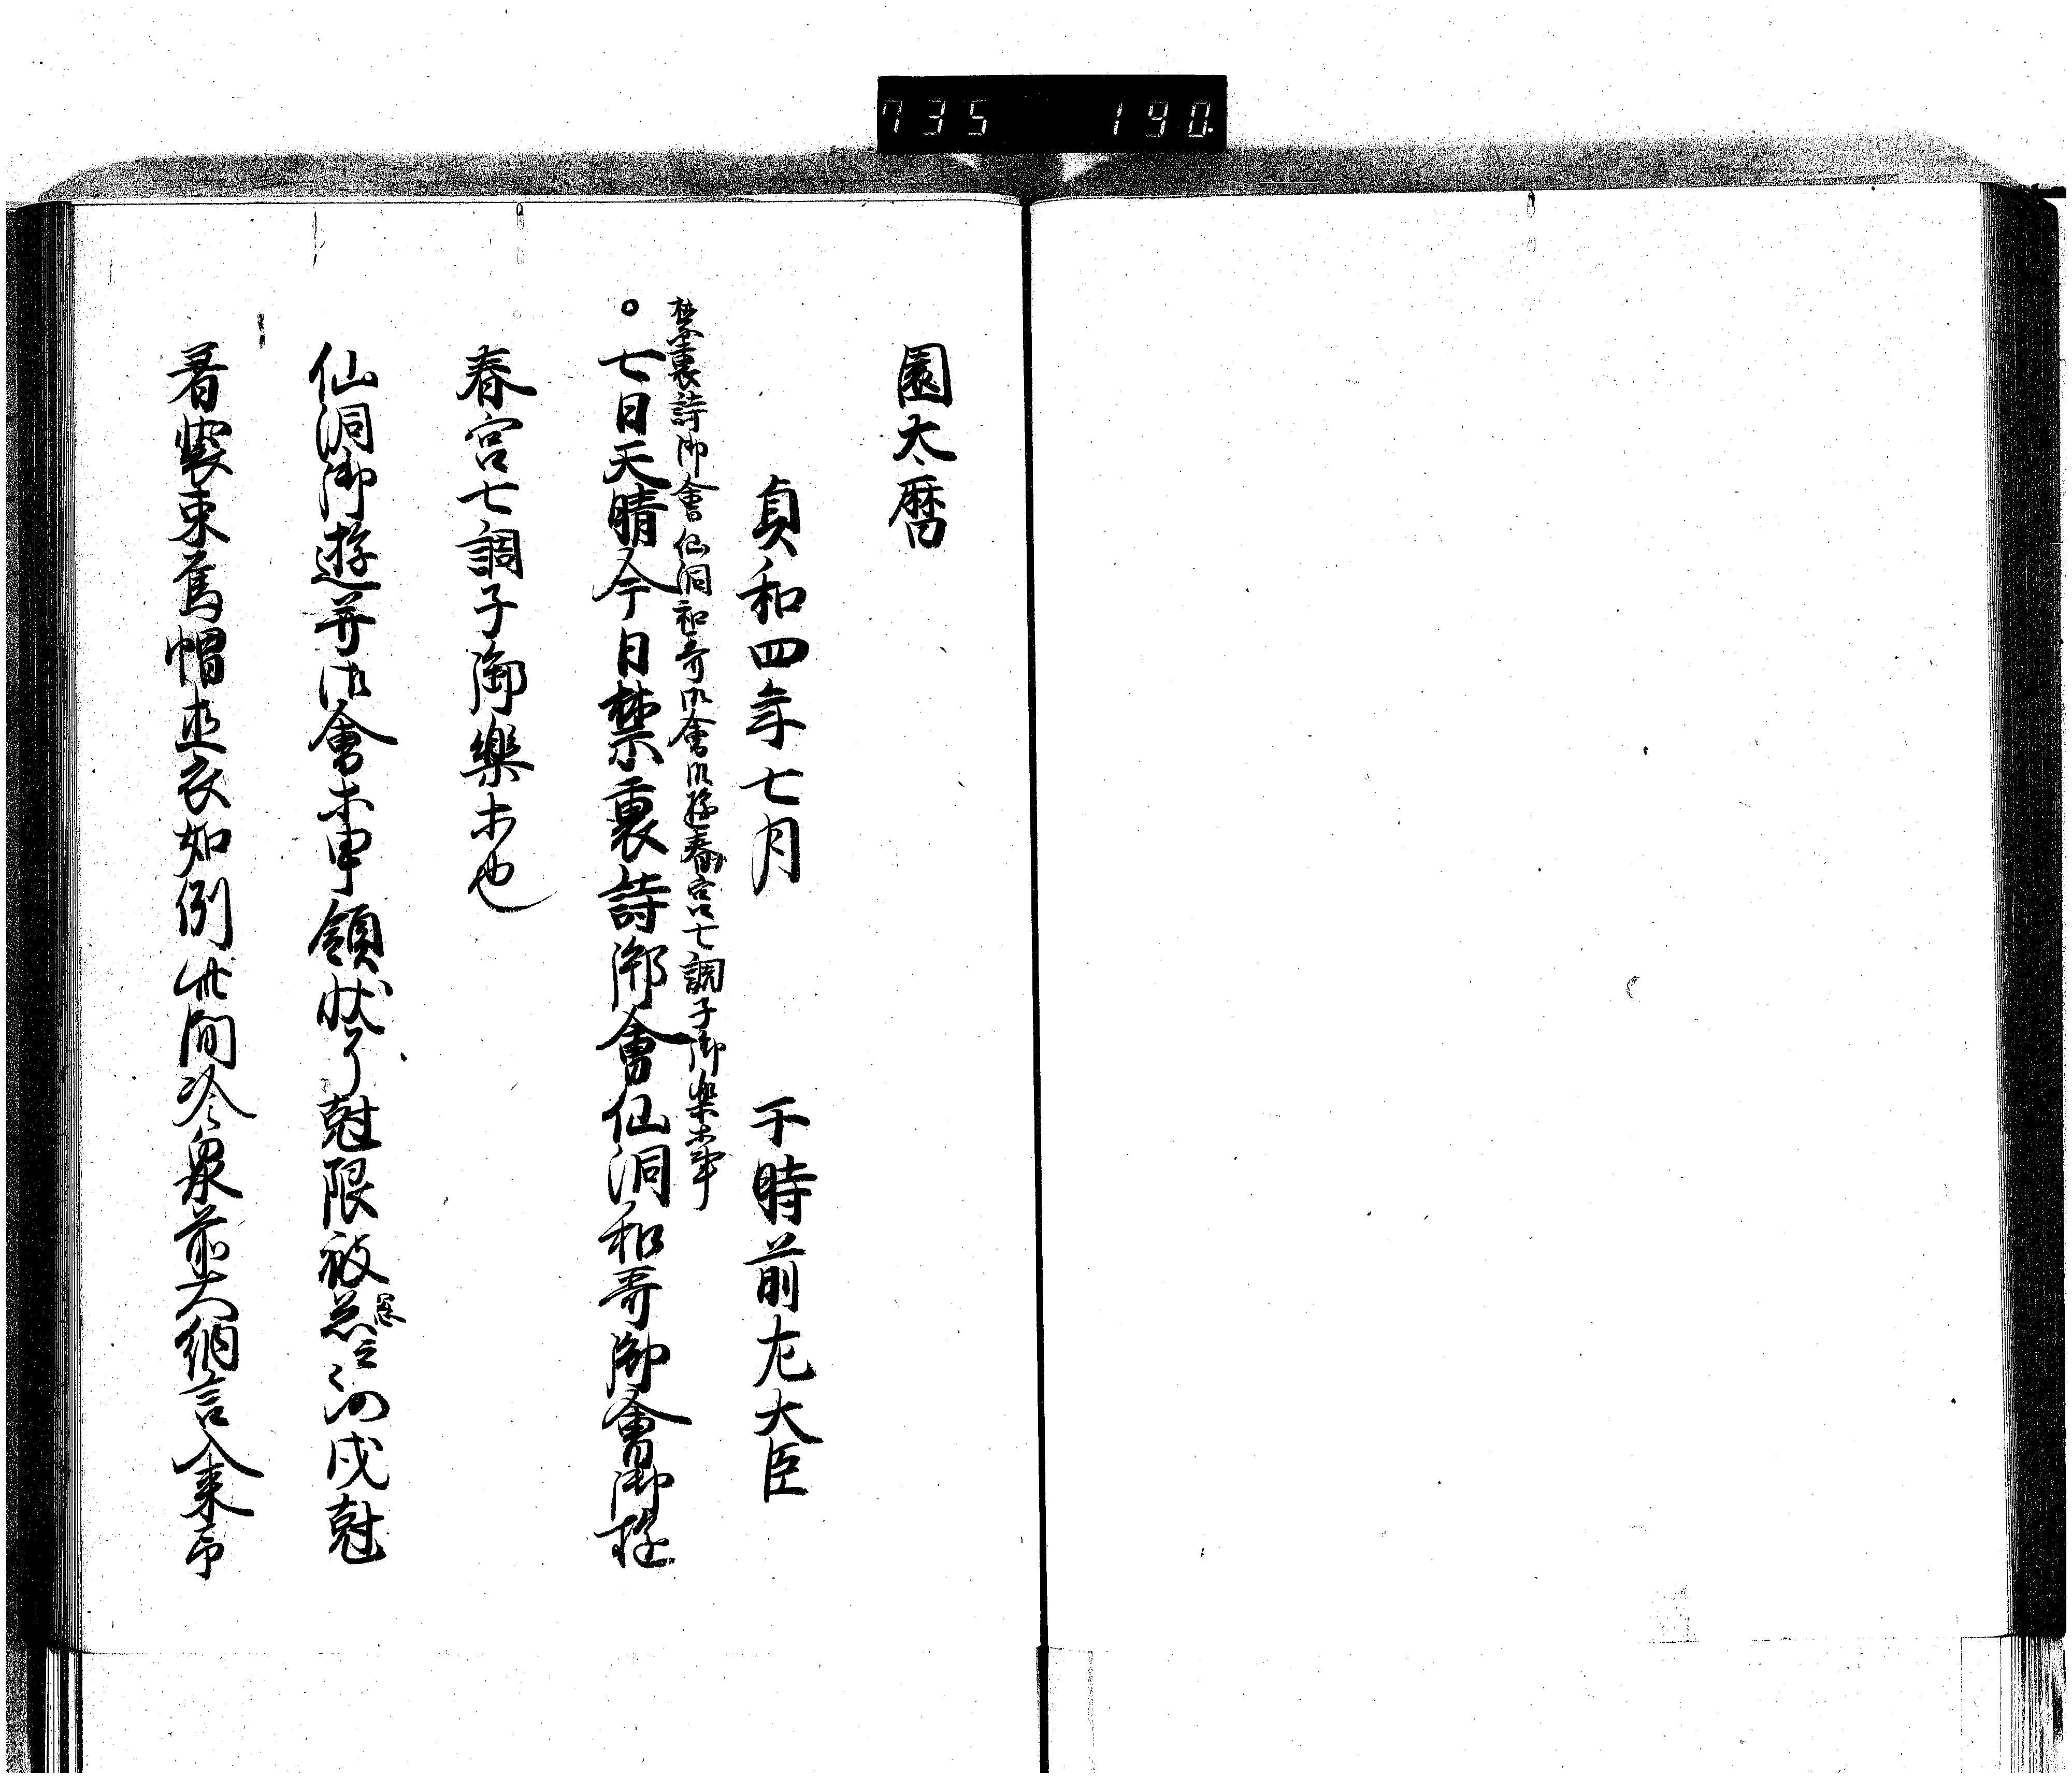 735 190
園太暦
貞和四年七月 于時前左大臣
禁裏詩御會仙洞和哥御會御遊春宮七調子御樂ホ事
。七日天晴今日禁裏詩御會仙洞和哥御會御遊
春宮七調子御樂ホ也
仙洞御遊并御會ホ事領状了剋限被忩之間戌剋
着装束烏帽直衣如例此間冷泉前大納言入来即